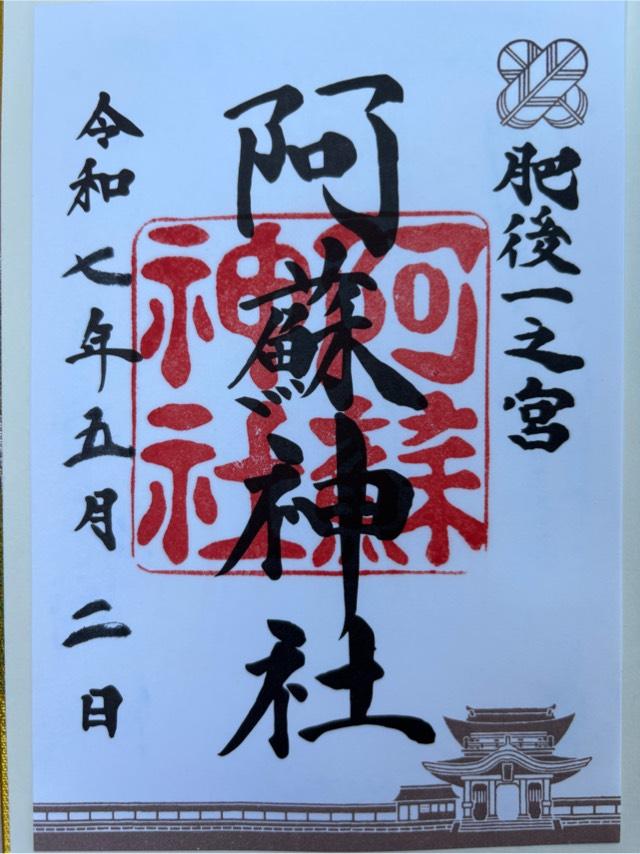 肥後一之宮
阿蘇神社
阿蘇
神社
令和七年五月二日